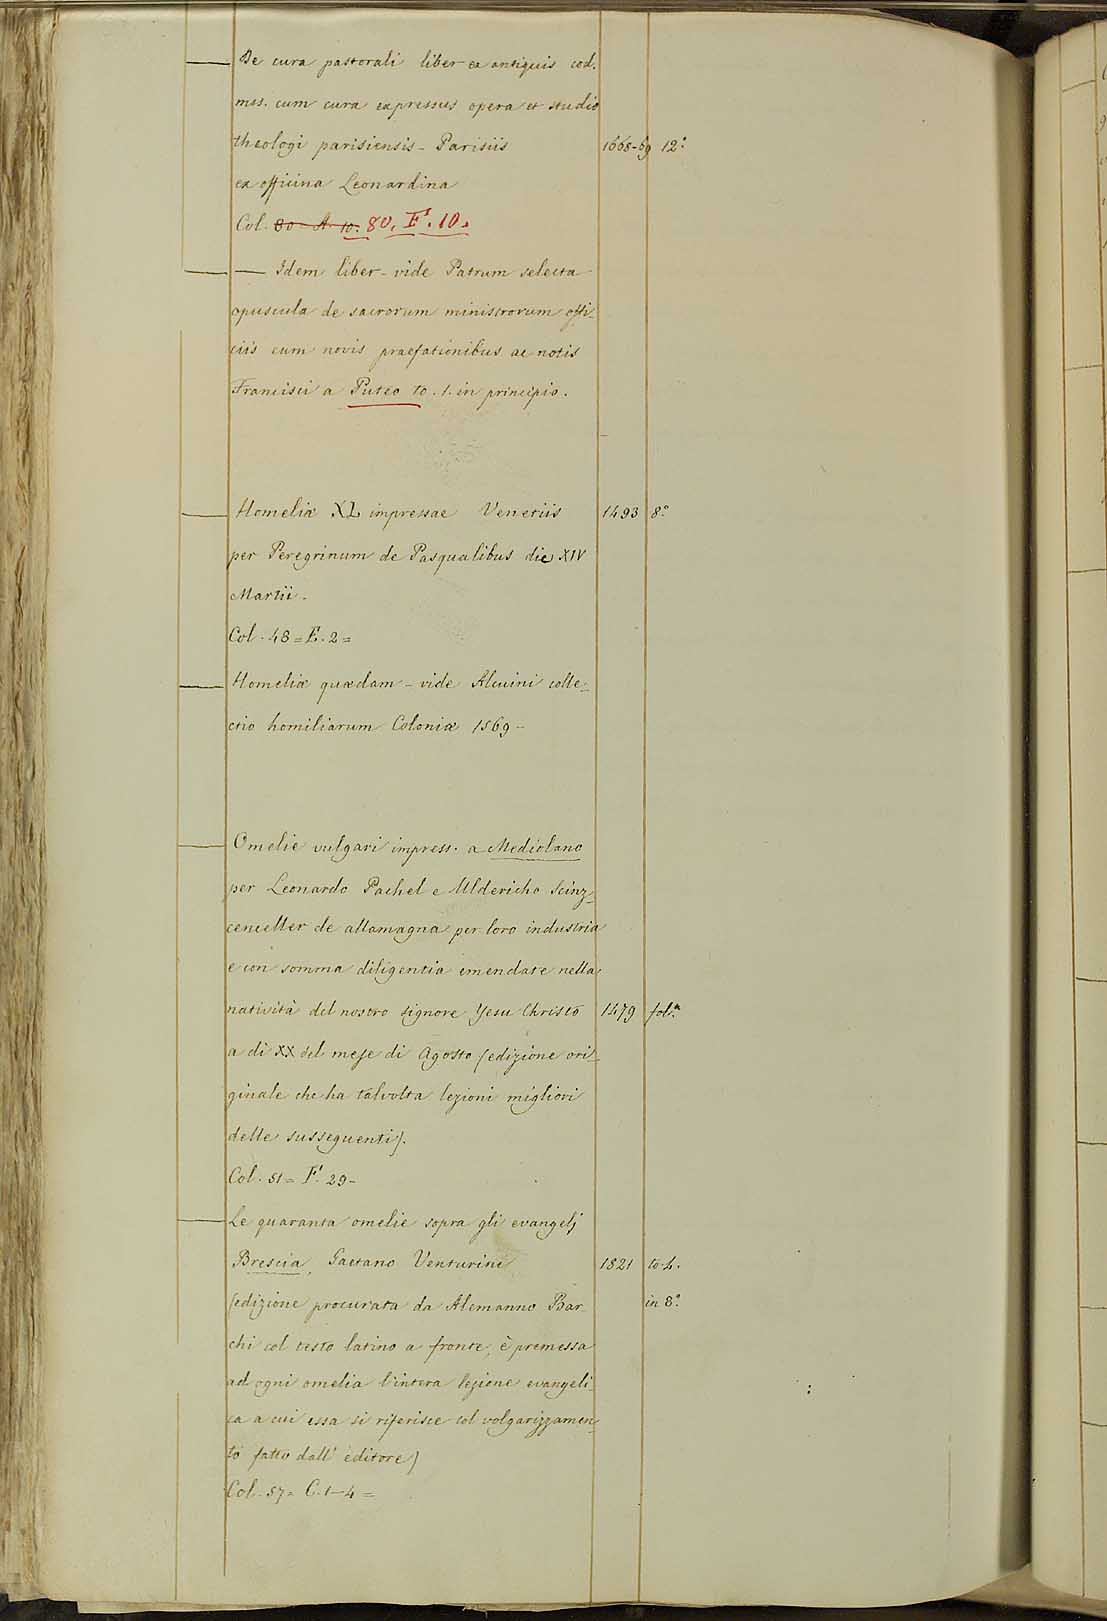 De cura pastorali liber ex antiquis cod.
mss. cum cura expressus opera et studio
theologi parisiensis - Parisiis 1668-69 12.°
ex officina Leonardina
Col. 80 A. 10. 80. F. 10.
— Idem liber - vide Patrum selecta
opuscula de sacrorum ministrorum offi-
ciis cum novis praefationibus ac notis
Francisci a Puteo to. 1. in principio.
Homeliæ XL impressae Venetiis 1493 8.°
per Peregrinum de Pasqualibus die XIV
Martii.
Col. 48 = E. 2 =
Homeliæ quædam - vide Alcuini colle-
ctio homiliarum Coloniæ 1569 -
Omelie vulgari impress. a Mediolano
per Leonardo Pachel e Uldericho Scinz-
cenceller de allamagna per loro industria
e con somma diligentia emendate nella
natività del nostro signore Yesu Christo 1479 fol.°
a di XX del mese di Agosto (edizione ori-
ginale che ha talvolta lezioni migliori
delle susseguenti).
Col. 51 = F. 29 -
Le quaranta omelie sopra gli evangelj
Brescia, Gaetano Venturini 1821 to. 4.
(edizione procurata da Alemanno Bar in 8.°
chi col testo latino a fronte, è premessa
ad ogni omelia l'intera lezione evangeli-
ca a cui essa si riferisce col volgarizzamen-
to fatto dall' editore)
Col. 57 = C. 1-4 =